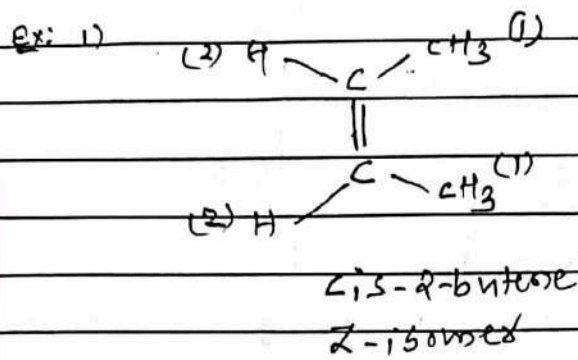 Ex: 1)
(2) H CH3 (1)
C
||
C
CH3 (1)
(2) H
cis-2-butene
Z-isomer